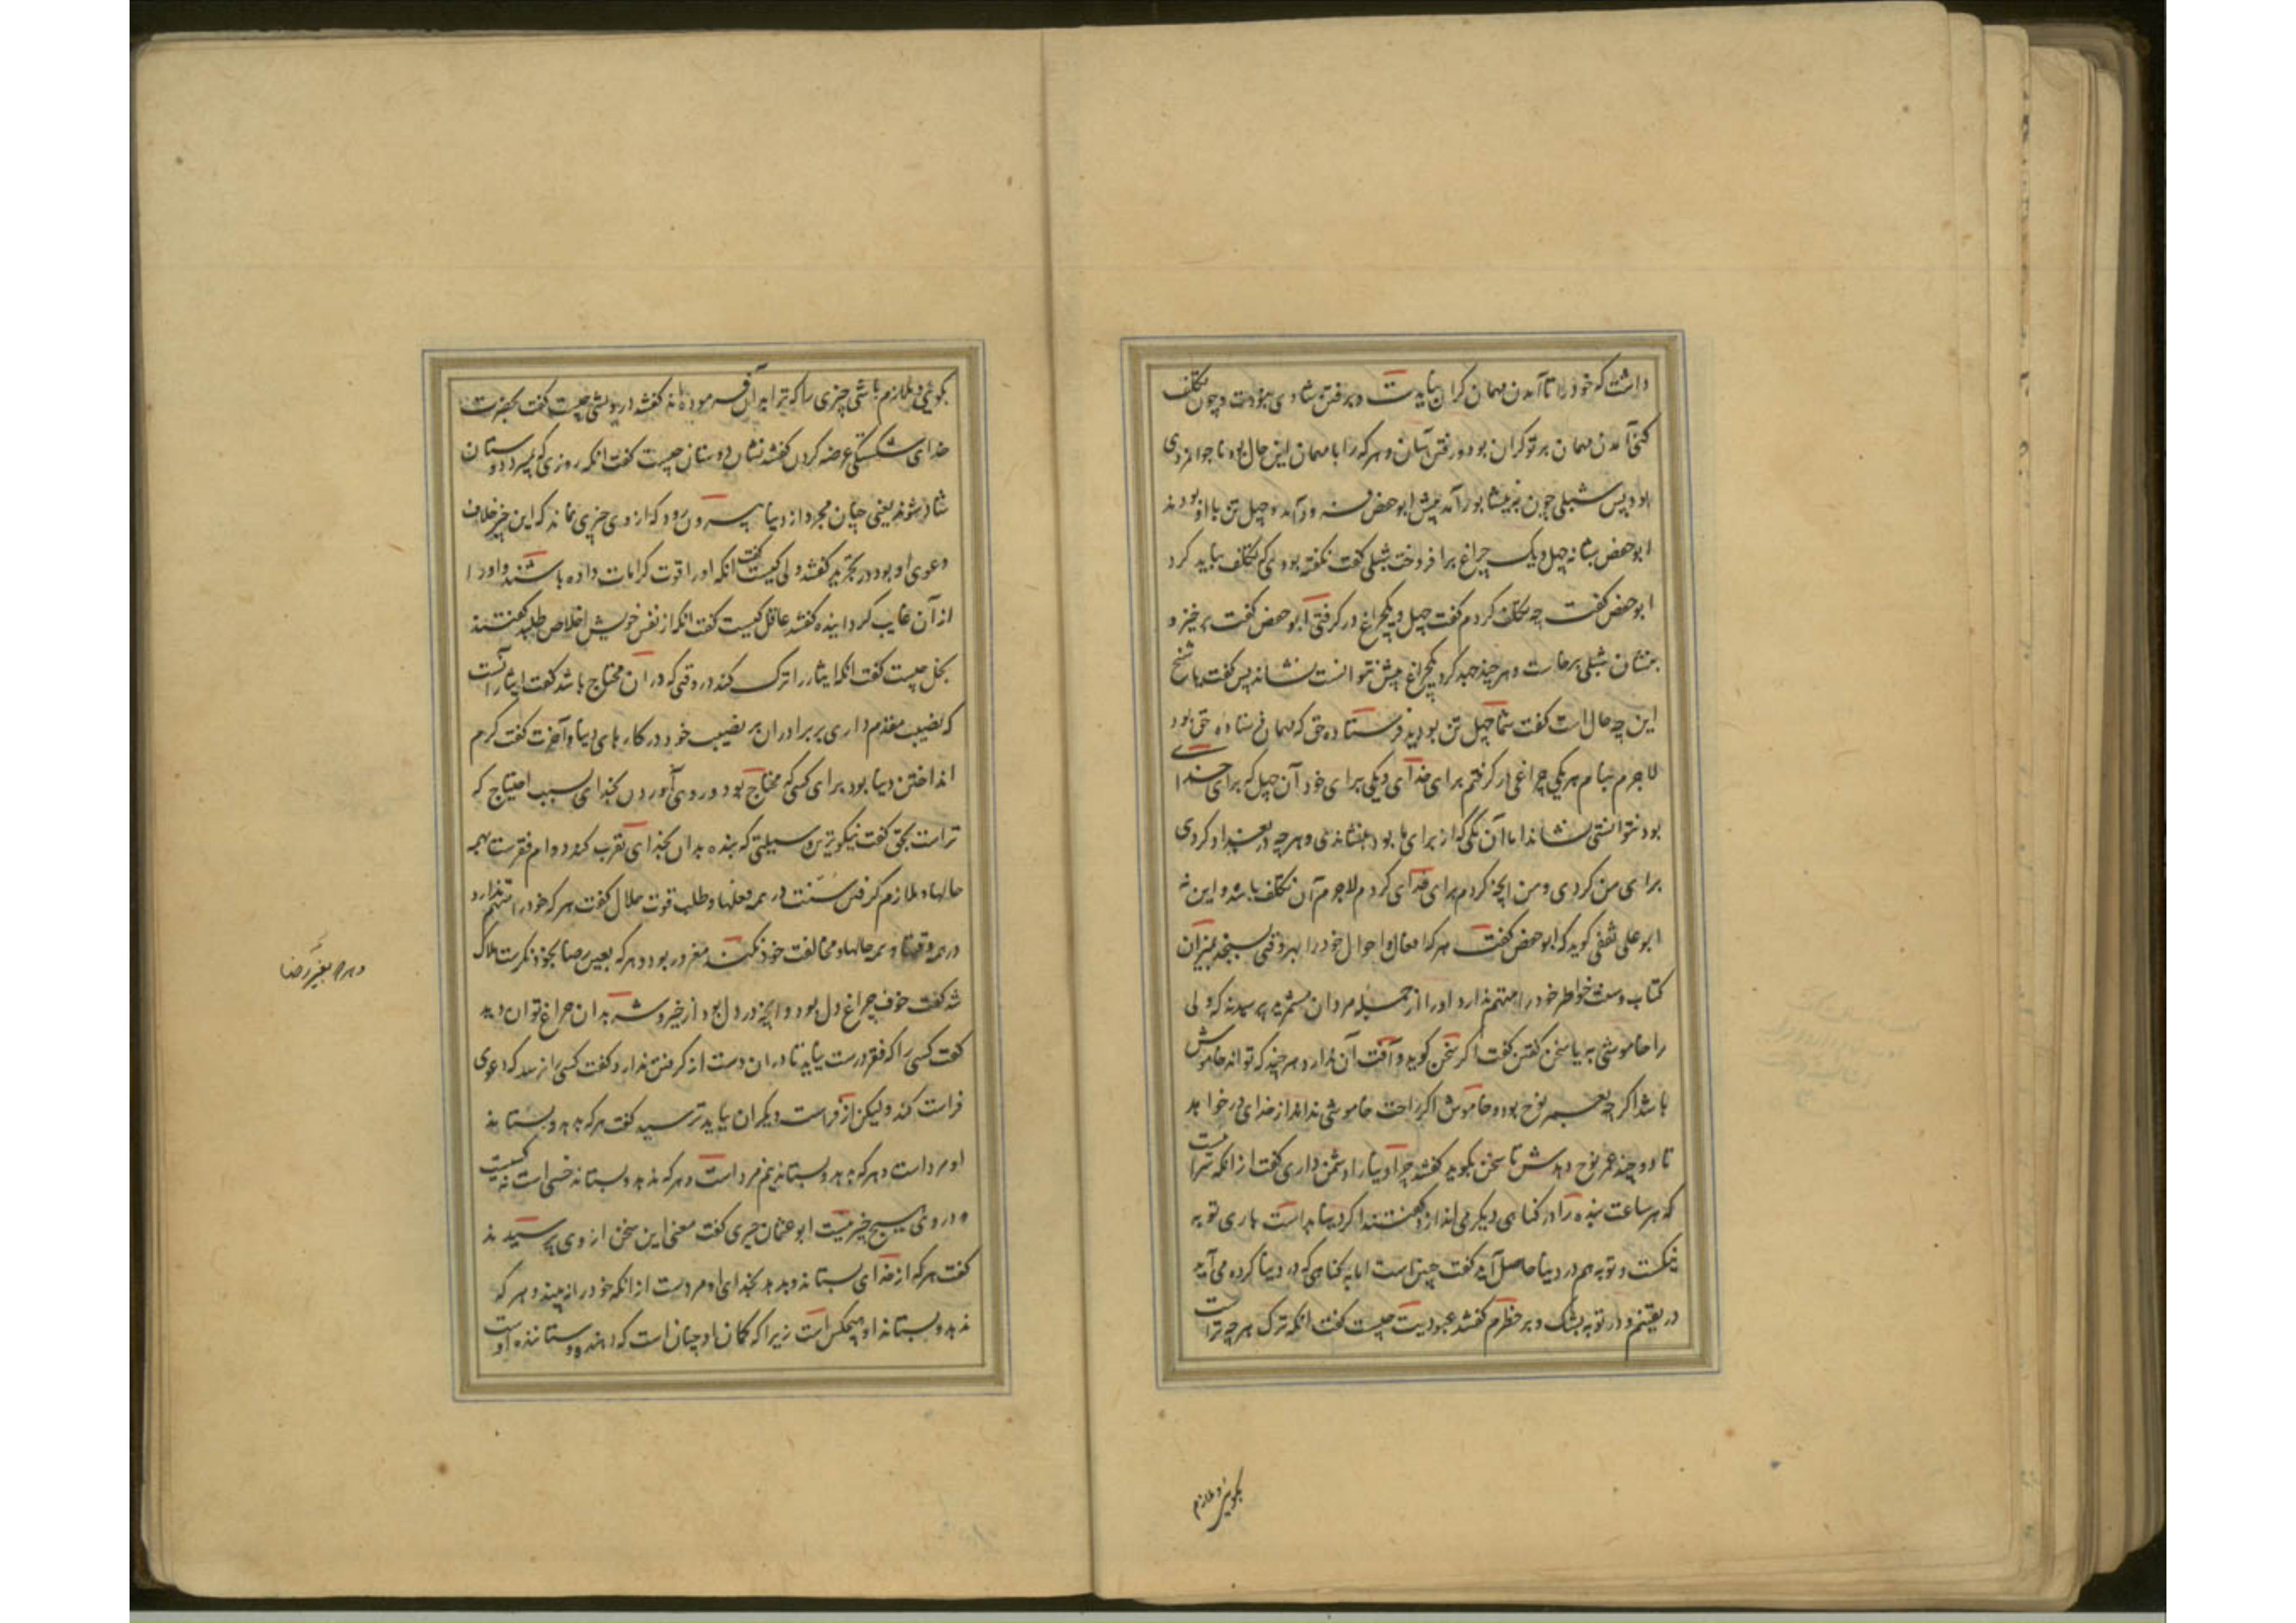 داشت که خود را تا آمدن مهمان گران نیاید و برفتن شادی نبودت و چون تکلف
کنی آمدن مهمان بر تو گران بود و رفتن آسان و هر که را با مهمان این حال بود ناجوانمردی
بود پس شبلی چون بنیشابور آمد پیش ابوحفص فرود آمد و چهل تن با او بودند
ابوحفص شبانه چهل و یک چراغ برافروخت شبلی گفت نگفته بودی که تکلف نباید کرد
ابوحفص گفت چه تکلف کردم گفت چهل و یک چراغ در گرفتی ابوحفص گفت برخیز و
بنشان شبلی برخاست و هر چند جهد کرد یکچراغ بیش نتوانست نشاند پس گفت یا شیخ
این چه حال است گفت شما چهل تن بودید فرستاده حق که مهمان فرستاده حق بود
لاجرم بنام هر یکی چراغی در گرفتم برای خدای و یکی برای خود آن چهل که برای خدا
بود نتوانستی نشاند اما آن یکی که از برای ما بود بنشاندی و هر چه در بغداد کردی
برای من کردی و من آنچه کردم برای خدای کردم لاجرم آن تکلف باشد و این نه
ابوعلی ثقفی گوید که ابوحفص گفت هر که افعال و احوال خود را بهر وقتی نسنجد بمیزان
کتاب و سنت و خواطر خود را متهم ندارد او را از جمله مردان مشمرید پرسیدند که ولی
را خاموشی به یا سخن گفتن گفت اگر سخن گوید و آفت آن داند هر چند که تواند خاموش
باشد اگر چه بعمر نوح بود و خاموش اگر راحت خاموشی بداند از خدای در خواهد
تا دو چند عمر نوح دهدش تا سخن بگوید گفتند چرا دنیا را دشمن داری گفت از آنکه سرائیست
که هر ساعت بنده را در گناهی دیگر می اندازد گفتند اگر دنیا بد است باری توبه
نیکست و توبه هم در دنیا حاصل آید گفت چنین است اما به گناهی که در دنیا کرده می آید
در یقینم و در توبه بشک و بر خطرم گفتند عبودیت چیست گفت آنکه ترک هر چه تراست
بگوئی و ملازم
بگوئی و ملازم باشی چیزی را که ترا بدان فرموده اند گفتند درویشی چیست گفت بحضرت
خدای شکستگی عرضه کردن گفتند نشان دوستان چیست گفت آنکه روزی که بمیرد دوستان
شاد شوند یعنی چنان مجرد از دنیا بیرون رود که از وی چیزی نماند که این چیز خلاف
دعوی او بود در تجرید گفتند ولی کیست گفت آنکه او را قوت کرامات داده باشند و او را
از آن غایب گردانیده گفتند عاقل کیست گفت آنکه از نفس خویش اخلاص طلبد گفتند
بخل چیست گفت آنکه ایثار را ترک کند در وقتی که در آن محتاج باشد گفت ایثار آنست
که نصیب مقدم داری بر برادران بر نصیب خود در کارهای دنیا و آخرت گفت کرم
انداختن دنیا بود برای کسی که محتاج بود و روی آوردن بخدای بسبب احتیاج که
تراست بحق گفت نیکوترین وسیلتی که بنده بدان بخدای تقرب کند دوام فقرست بهمه
حالها و ملازم گرفتن سنت در همه فعلها و طلب قوت حلال گفت هر که خود را متهم ندارد
در همه وقتها و همه حالها و مخالفت خود نکند مغرور بود و هر که بعین رضا بخود نگرست هلاک
شد گفت خوف چراغ دل بود و آنچه در دل بود از خیر و شر بدان چراغ توان دید
گفت کسی را که فقر درست نیاید تا در آن دست از گرفتن ندارد و گفت کسی را نرسد که دعوی
فراست کند ولیکن از فراست دیگران بباید ترسید گفت هر که بدهد و بستاند
او مرد است و هر که بدهد و نستاند نیم مرد است و هر که ندهد و بستاند خسی است نه کسیست
و در وی هیچ خیر نیست ابوعثمان حیری گفت معنی این سخن از وی پرسیدند
گفت هر که از خدای بستاند و بدهد بخدای او مردست از آنکه خود را نه بیند و هر که
ندهد و بستاند او هیچکس است زیرا که گمان او چنان است که دهنده و ستاننده اوست